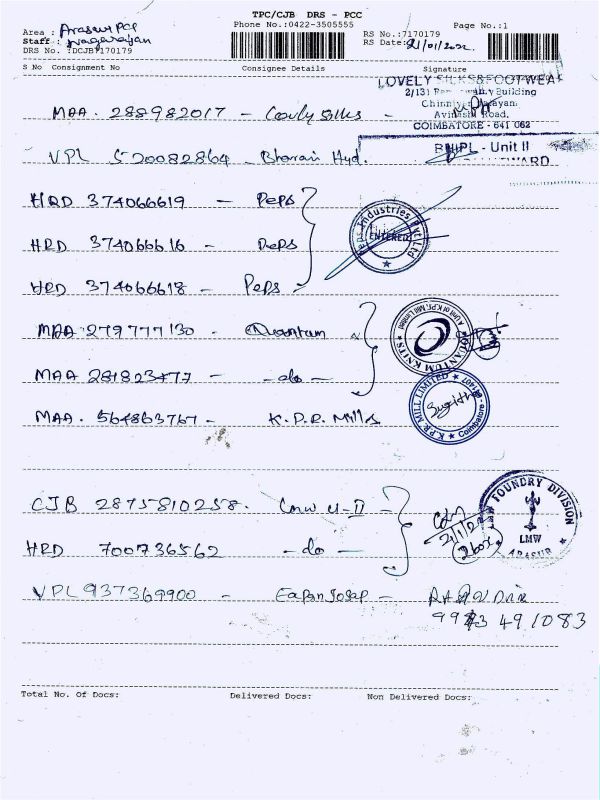 TPC/CJB DRS - PCC
Phone No.:0422-3505555
Page No.:1
Area : Arasur PCC
Staff : Nagarajan
DRS No. :DCJB7170179
RS No.:7170179
RS Date: 21/01/22
S No Consignment No Consignee Details Signature
LOVELY SILKS & FOOTWEAR
2/131 Building
Chinniyampalayam
Avinashi Road,
COIMBATORE - 641 062
MAA. 288982017 - Lovely silks -
VPL 520082864 - Bharani Hyd.
BHIPL - Unit II
INWARD
HRD 374066619 - Peps
HRD 374066616 - Peps
Peps Industries Pvt Ltd
ENTERED
HRD 374066618 - Peps -
MAA 279777130 - Quantum
A Unit of K.P.R. Mill Limited
QUANTUM KNITS
MAA 281823477 - - do -
MAA. 564863767 - K.P.R. Mills
K.P.R. MILL LIMITED
Coimbatore - 641407
CJB 2875810258. Lmw U-II -
FOUNDRY DIVISION
LMW
ARASUR
21/1/22
2 box
HRD 700736562 - do -
VPL 937369900 - Eapen Josep -
491083
Total No. Of Docs: Delivered Docs: Non Delivered Docs: